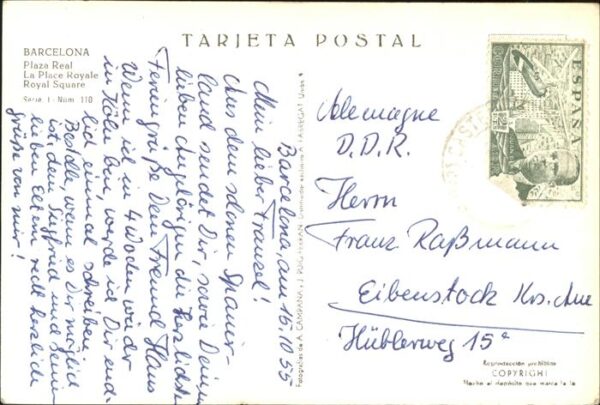 TARJETA POSTAL
BARCELONA
Plaza Real
La Place Royale
Royal Square
Serie I - Núm. 110
Barcelona, am 16.10.55
Mein lieber Franzel!
Aus dem schönen Spanien-
land sendet Dir, sowie Deinen
lieben Angehörigen die herzlichsten
Feriengrüße Dein Freund Hans
Wenn ich in 4 Wochen wieder
in Köln bin, werde ich Dir end-
lich einmal schreiben.
Bestelle, wenn es Dir möglich
ist, dem Siegfried und seinen
lieben Eltern recht herzliche
Grüße von mir!
Alemagne
D.D.R.
Herrn
Franz Raßmann
Eibenstock Krs. Aue
Hüblerweg 15a
ESPAÑA
Fotografías de A. CAMPAÑA y J. PUIG-FERRAN
Reproducción prohibida
COPYRIGHT
Hecho el depósito que marca la ley